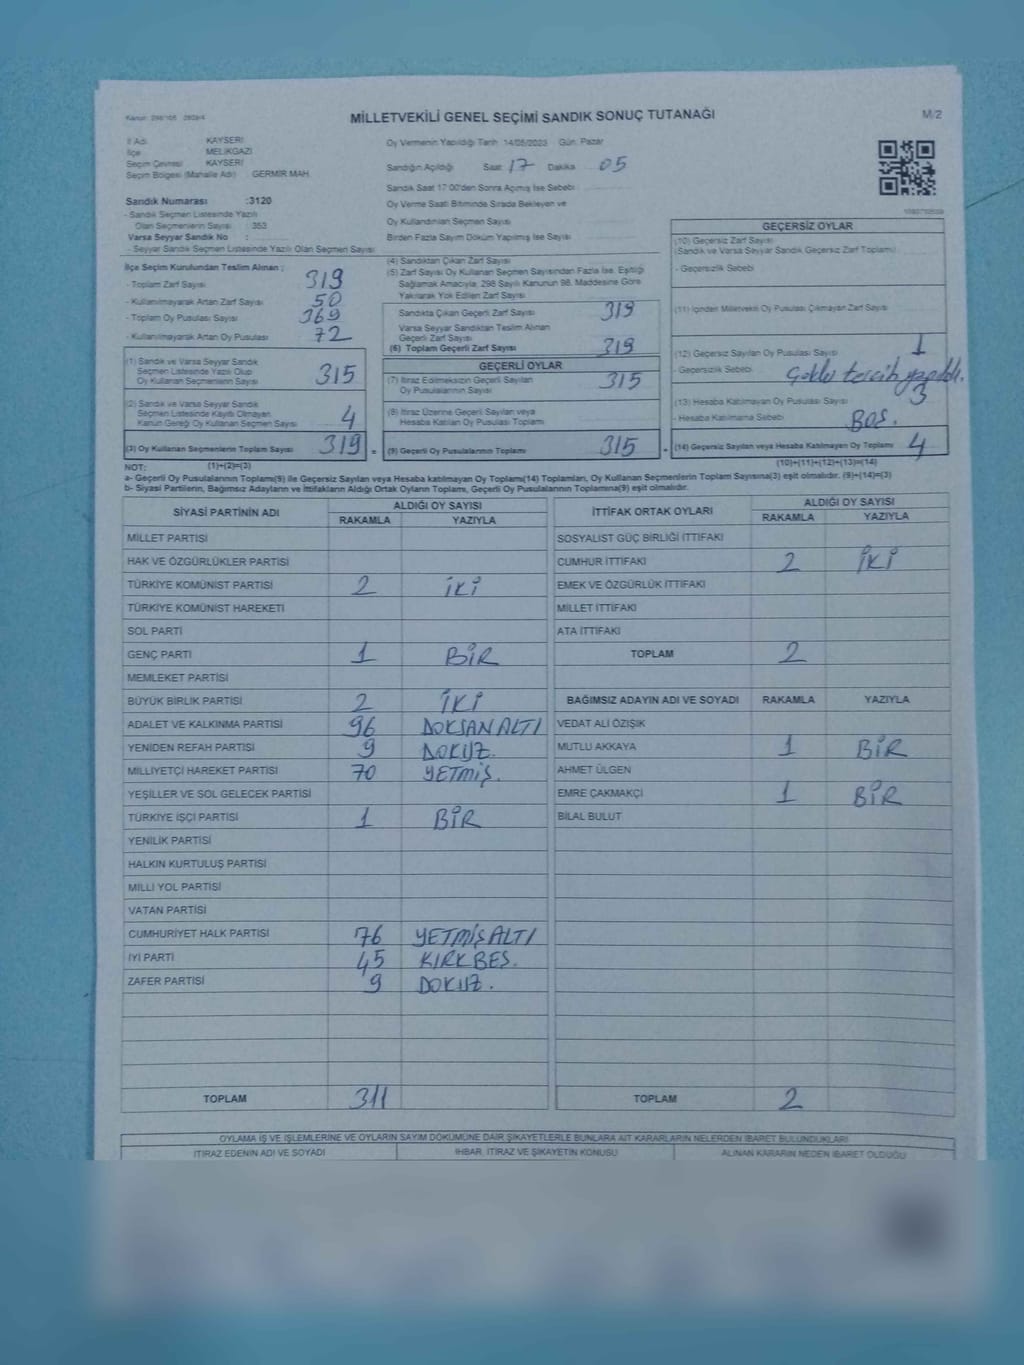 MİLLETVEKİLİ GENEL SEÇİMİ SANDIK SONUÇ TUTANAĞI
M/2
İl Adı KAYSERİ
İlçe MELİKGAZİ
Seçim Çevresi KAYSERİ
Seçim Bölgesi (Mahalle Adı) GERMİR MAH.
Sandık Numarası :3120
- Sandık Seçmen Listesinde Yazılı
Olan Seçmenlerin Sayısı : 353
Varsa Seyyar Sandık No :
- Seyyar Sandık Seçmen Listesinde Yazılı Olan Seçmen Sayısı
Oy Vermenin Yapıldığı Tarih 14/05/2023 Gün. Pazar
Sandığın Açıldığı Saat 17 Dakika 05
Sandık Saat 17:00'den Sonra Açılmış İse Sebebi
Oy Verme Saati Bitiminde Sırada Bekleyen ve
Oy Kullandırılan Seçmen Sayısı
Birden Fazla Sayım Döküm Yapılmış İse Sayısı
İlçe Seçim Kurulundan Teslim Alınan :
- Toplam Zarf Sayısı 319
- Kullanılmayarak Artan Zarf Sayısı 50
- Toplam Oy Pusulası Sayısı 369
- Kullanılmayarak Artan Oy Pusulası 72
(1) Sandık ve Varsa Seyyar Sandık
Seçmen Listesinde Yazılı Olup
Oy Kullanan Seçmenlerin Sayısı 315
(2) Sandık ve Varsa Seyyar Sandık
Seçmen Listesinde Kayıtlı Olmayan
Kanun Gereği Oy Kullanan Seçmen Sayısı 4
(3) Oy Kullanan Seçmenlerin Toplam Sayısı 319 =
(4) Sandıktan Çıkan Zarf Sayısı
(5) Zarf Sayısı Oy Kullanan Seçmen Sayısından Fazla İse, Eşitliği
Sağlamak Amacıyla, 298 Sayılı Kanunun 98. Maddesine Göre
Yakılarak Yok Edilen Zarf Sayısı
Sandıkta Çıkan Geçerli Zarf Sayısı 319
Varsa Seyyar Sandıktan Teslim Alınan
Geçerli Zarf Sayısı
(6) Toplam Geçerli Zarf Sayısı 319
GEÇERLİ OYLAR
(7) İtiraz Edilmeksizin Geçerli Sayılan
Oy Pusulalarının Sayısı 315
(8) İtiraz Üzerine Geçerli Sayılan veya
Hesaba Katılan Oy Pusulası Toplamı
(9) Geçerli Oy Pusulalarının Toplamı 315
GEÇERSİZ OYLAR
(10) Geçersiz Zarf Sayısı
(Sandık ve Varsa Seyyar Sandık Geçersiz Zarf Toplamı)
- Geçersizlik Sebebi
(11) İçinden Milletvekili Oy Pusulası Çıkmayan Zarf Sayısı
(12) Geçersiz Sayılan Oy Pusulası Sayısı 1
- Geçersizlik Sebebi Çoklu tercih yapıldı.
(13) Hesaba Katılmayan Oy Pusulası Sayısı 3
- Hesaba Katılmama Sebebi BOŞ.
(14) Geçersiz Sayılan veya Hesaba Katılmayan Oy Toplamı 4
NOT: (1)+(2)=(3) (10)+(11)+(12)+(13)=(14)
a- Geçerli Oy Pusulalarının Toplamı(9) ile Geçersiz Sayılan veya Hesaba katılmayan Oy Toplamı(14) Toplamları, Oy Kullanan Seçmenlerin Toplam Sayısına(3) eşit olmalıdır. (9)+(14)=(3)
b- Siyasi Partilerin, Bağımsız Adayların ve İttifakların Aldığı Ortak Oyların Toplamı, Geçerli Oy Pusulalarının Toplamına(9) eşit olmalıdır.
SİYASİ PARTİNİN ADI ALDIĞI OY SAYISI
RAKAMLA YAZIYLA
MİLLET PARTİSİ
HAK VE ÖZGÜRLÜKLER PARTİSİ
TÜRKİYE KOMÜNİST PARTİSİ 2 İKİ
TÜRKİYE KOMÜNİST HAREKETİ
SOL PARTİ
GENÇ PARTİ 1 BİR
MEMLEKET PARTİSİ
BÜYÜK BİRLİK PARTİSİ 2 İKİ
ADALET VE KALKINMA PARTİSİ 96 DOKSAN ALTI
YENİDEN REFAH PARTİSİ 9 DOKUZ.
MİLLİYETÇİ HAREKET PARTİSİ 70 YETMİŞ.
YEŞİLLER VE SOL GELECEK PARTİSİ
TÜRKİYE İŞÇİ PARTİSİ 1 BİR
YENİLİK PARTİSİ
HALKIN KURTULUŞ PARTİSİ
MİLLİ YOL PARTİSİ
VATAN PARTİSİ
CUMHURİYET HALK PARTİSİ 76 YETMİŞ ALTI
İYİ PARTİ 45 KIRK BEŞ.
ZAFER PARTİSİ 9 DOKUZ.
TOPLAM 311
İTTİFAK ORTAK OYLARI ALDIĞI OY SAYISI
RAKAMLA YAZIYLA
SOSYALİST GÜÇ BİRLİĞİ İTTİFAKI
CUMHUR İTTİFAKI 2 İKİ
EMEK VE ÖZGÜRLÜK İTTİFAKI
MİLLET İTTİFAKI
ATA İTTİFAKI
TOPLAM 2
BAĞIMSIZ ADAYIN ADI VE SOYADI RAKAMLA YAZIYLA
VEDAT ALİ ÖZIŞIK
MUTLU AKKAYA 1 BİR
AHMET ÜLGEN
EMRE ÇAKMAKÇİ 1 BİR
BİLAL BULUT
TOPLAM 2
OYLAMA İŞ VE İŞLEMLERİNE VE OYLARIN SAYIM DÖKÜMÜNE DAİR ŞİKAYETLERLE BUNLARA AİT KARARLARIN NELERDEN İBARET BULUNDUKLARI
İTİRAZ EDENİN ADI VE SOYADI İHBAR, İTİRAZ VE ŞİKAYETİN KONUSU ALINAN KARARIN NEDEN İBARET OLDUĞU